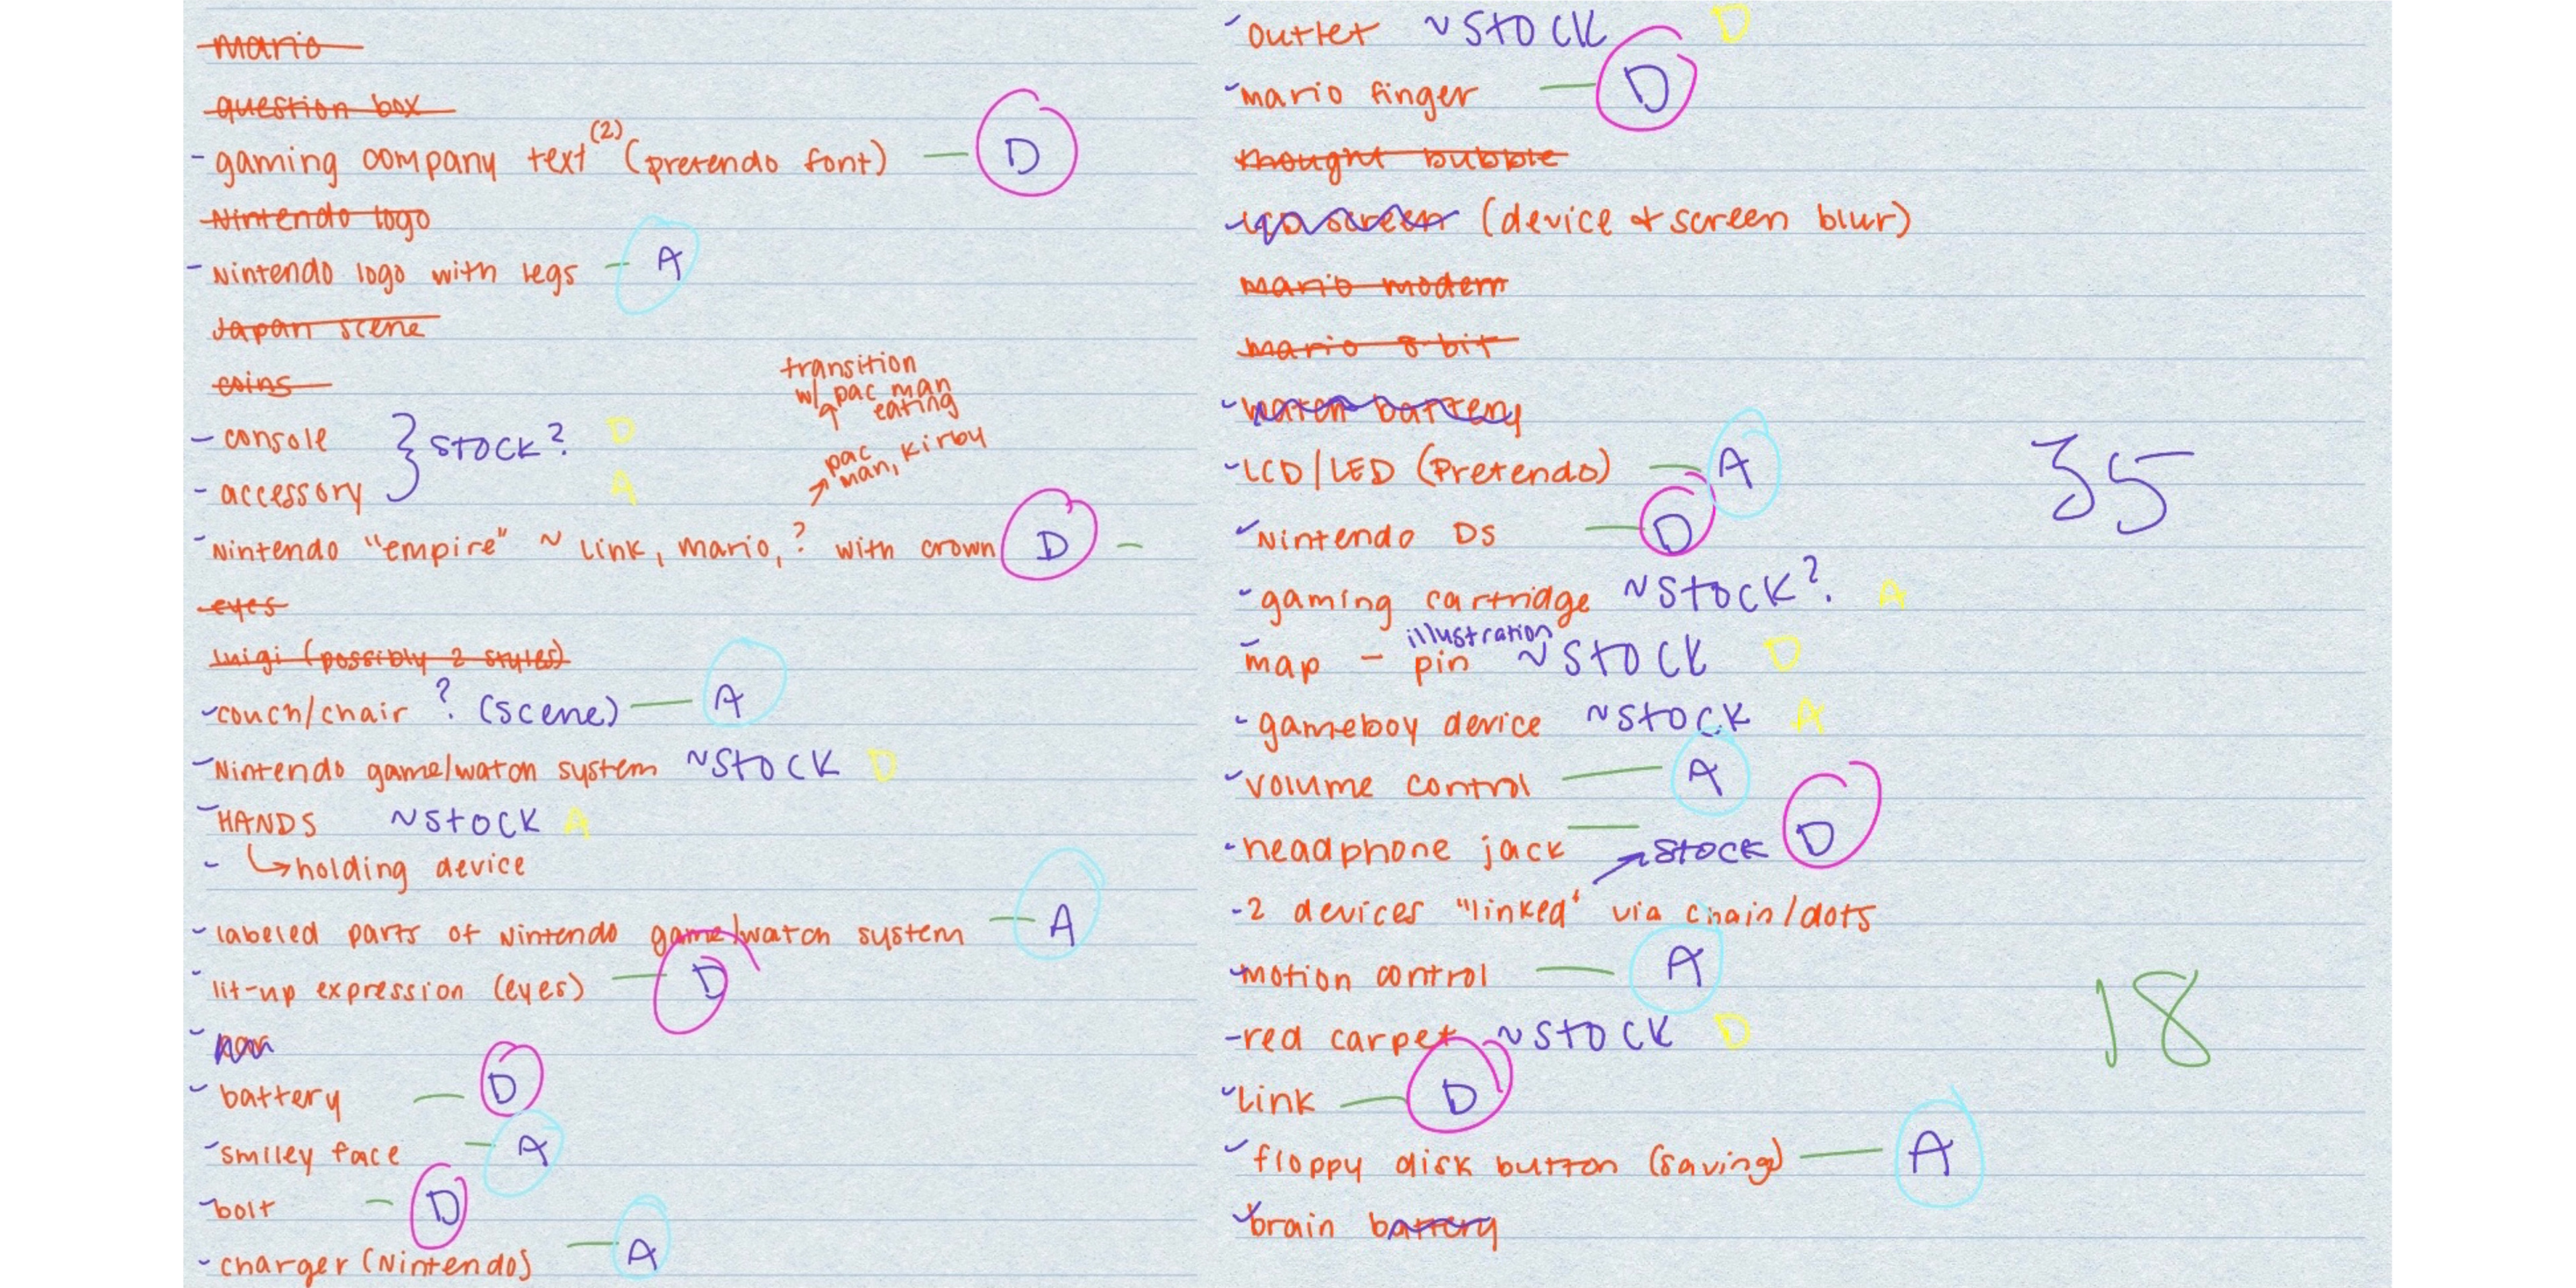 mario
question box
- gaming company text (2) (pretendo font) — D
Nintendo logo
- Nintendo logo with legs - A
Japan scene
coins
transition
w/ pac man
eating
- console } STOCK? D
- accessory A
pac
man, kirby
- Nintendo "empire" ~ Link, mario, ? with crown D -
eyes
luigi (possibly 2 styles)
- couch/chair ? (scene) — A
- Nintendo game/watch system ~STOCK D
- HANDS ~STOCK A
- ↳holding device
- labeled parts of Nintendo game/watch system — A
- lit-up expression (eyes) — D
- battery — D
- smiley face — A
- bolt - D
- charger (Nintendo) — A
- outlet ~STOCK D
- mario finger — D
thought bubble
- LCD screen (device & screen blur)
mario modern
mario 8-bit
- watch battery
- LCD/LED (Pretendo) — A
35
- Nintendo DS — D
- gaming cartridge ~STOCK? A
illustration
- map - pin ~STOCK D
- gameboy device ~STOCK A
- volume control — A
- headphone jack — D
→ STOCK
- 2 devices "linked" via chain/dots
- motion control — A
- red carpet ~STOCK D
18
- Link — D
- floppy disk button (saving) — A
- brain battery